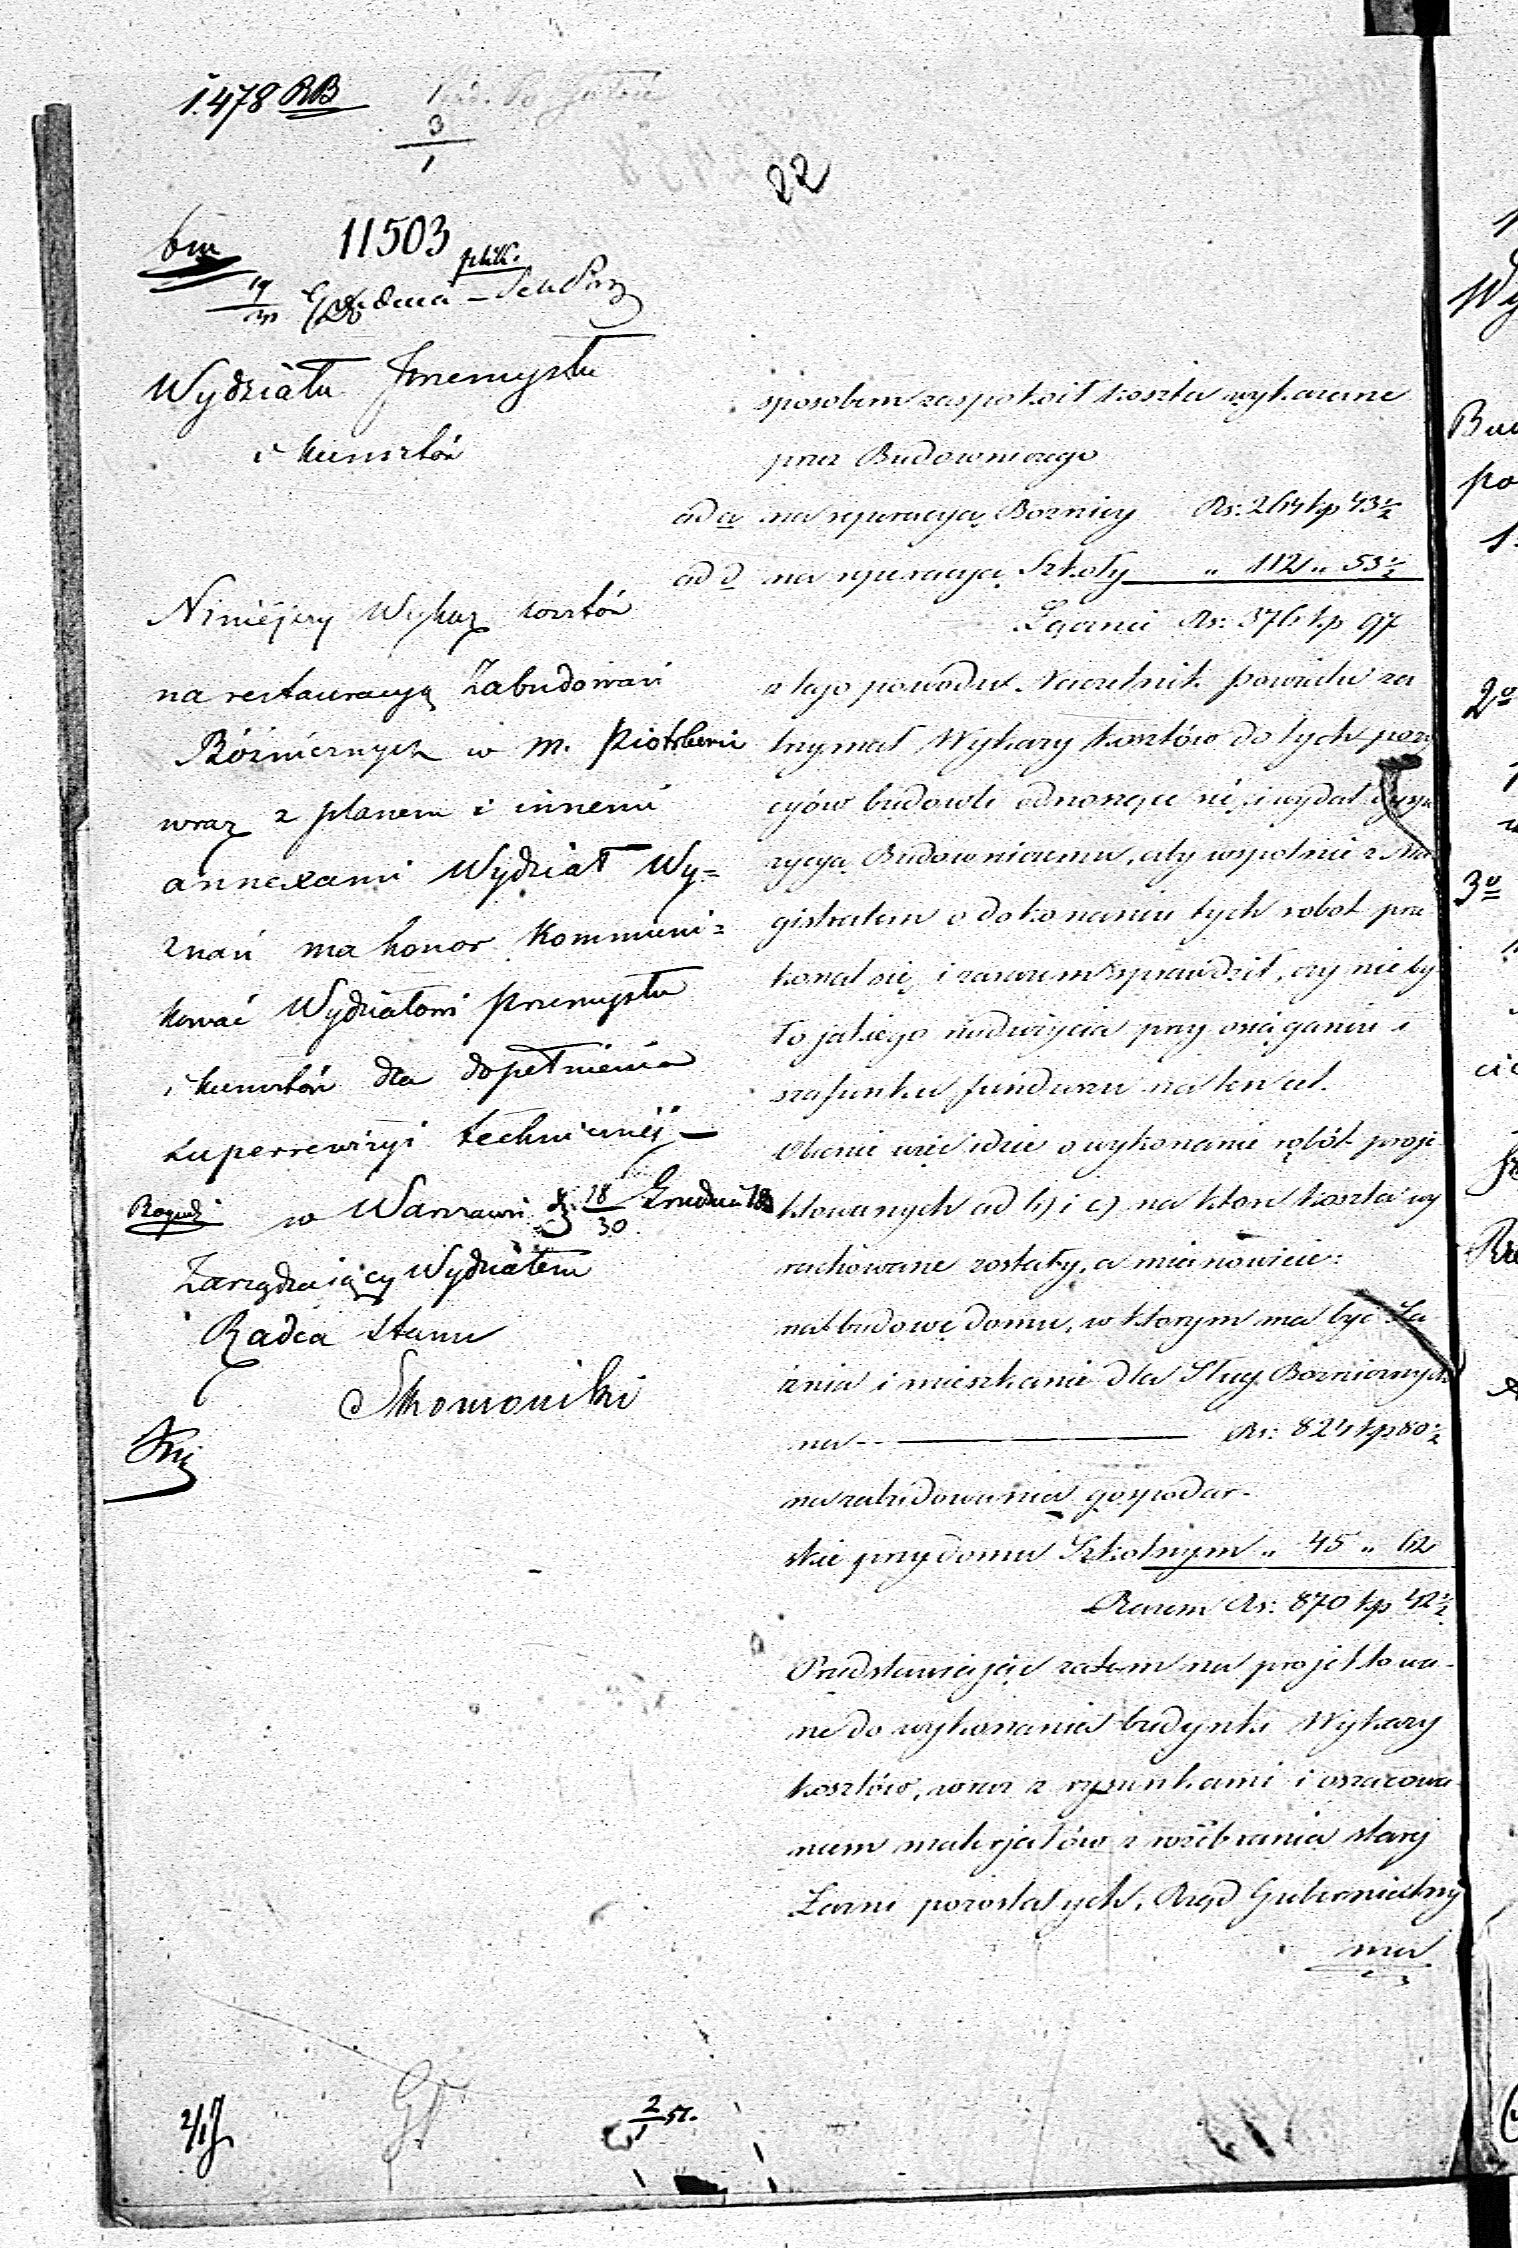 1.478 RB
3
1
22
11503
19
30
Wydziału Przemysłu
i Kunsztów
Niniejszy Wykaz kosztów
na restauracyą Zabudowań
Bóźniczych w m.
wraz z planem i innemi
annexami Wydział Wy=
znań ma honor kommuni=
kować Wydziałowi przemysłu
i Kunsztów dla dopełnienia
superrewizyi technicznéj —
w Warszawie d. 18/30 Grudnia
Zarządzający Wydziałem
Radca Stanu
sposobem zaspokoił koszta wykazane
przez Budowniczego
ad a na reperacyą Boznicy Rs: 264 kp 43½
ad d na reperacyą Szkoły „ 112 „ 53½
Łącznie Rs: 376 kp 97
z tego powodu Naczelnik Powiatu za
trzymał Wykazy kosztów do tych pozy
cyów budowli odnoszące się, i wydał dyspo
zycyą Budowniczemu, aby wspolnie z Ma
gistratem o dokonaniu tych robot prze
konał się i zarazem sprawdził, czy nie by
ło jakiego nadużycia przy osiąganiu i
szafunku funduszu na ten cel.
Obecnie więc idzie o wykonanie robót proje
ktowanych ad b) i c) na które koszta wy
rachowane zostały, a mianowicie:
na budowę domu, w którym ma być Ła
źnia i mieszkanie dla Sług Bozniczych
na — Rs: 824 kp 80½
na zabudowania gospodar-
skie przy domu Szkolnym „ 45 „ 62
Razem Rs: 870 kp 42½
Przedstawiając zatem na projektowa-
ne do wykonania budynki Wykazy
kosztów, wraz z rysunkami i oszacowa
niem materjałów z rozebrania starej
Łaźni pozostałych, Rząd Gubernialny
ma
2/1 51.